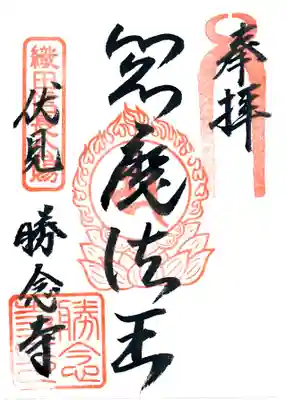 奉拝
閻魔法王
織田 賜
伏見 勝念寺
勝念